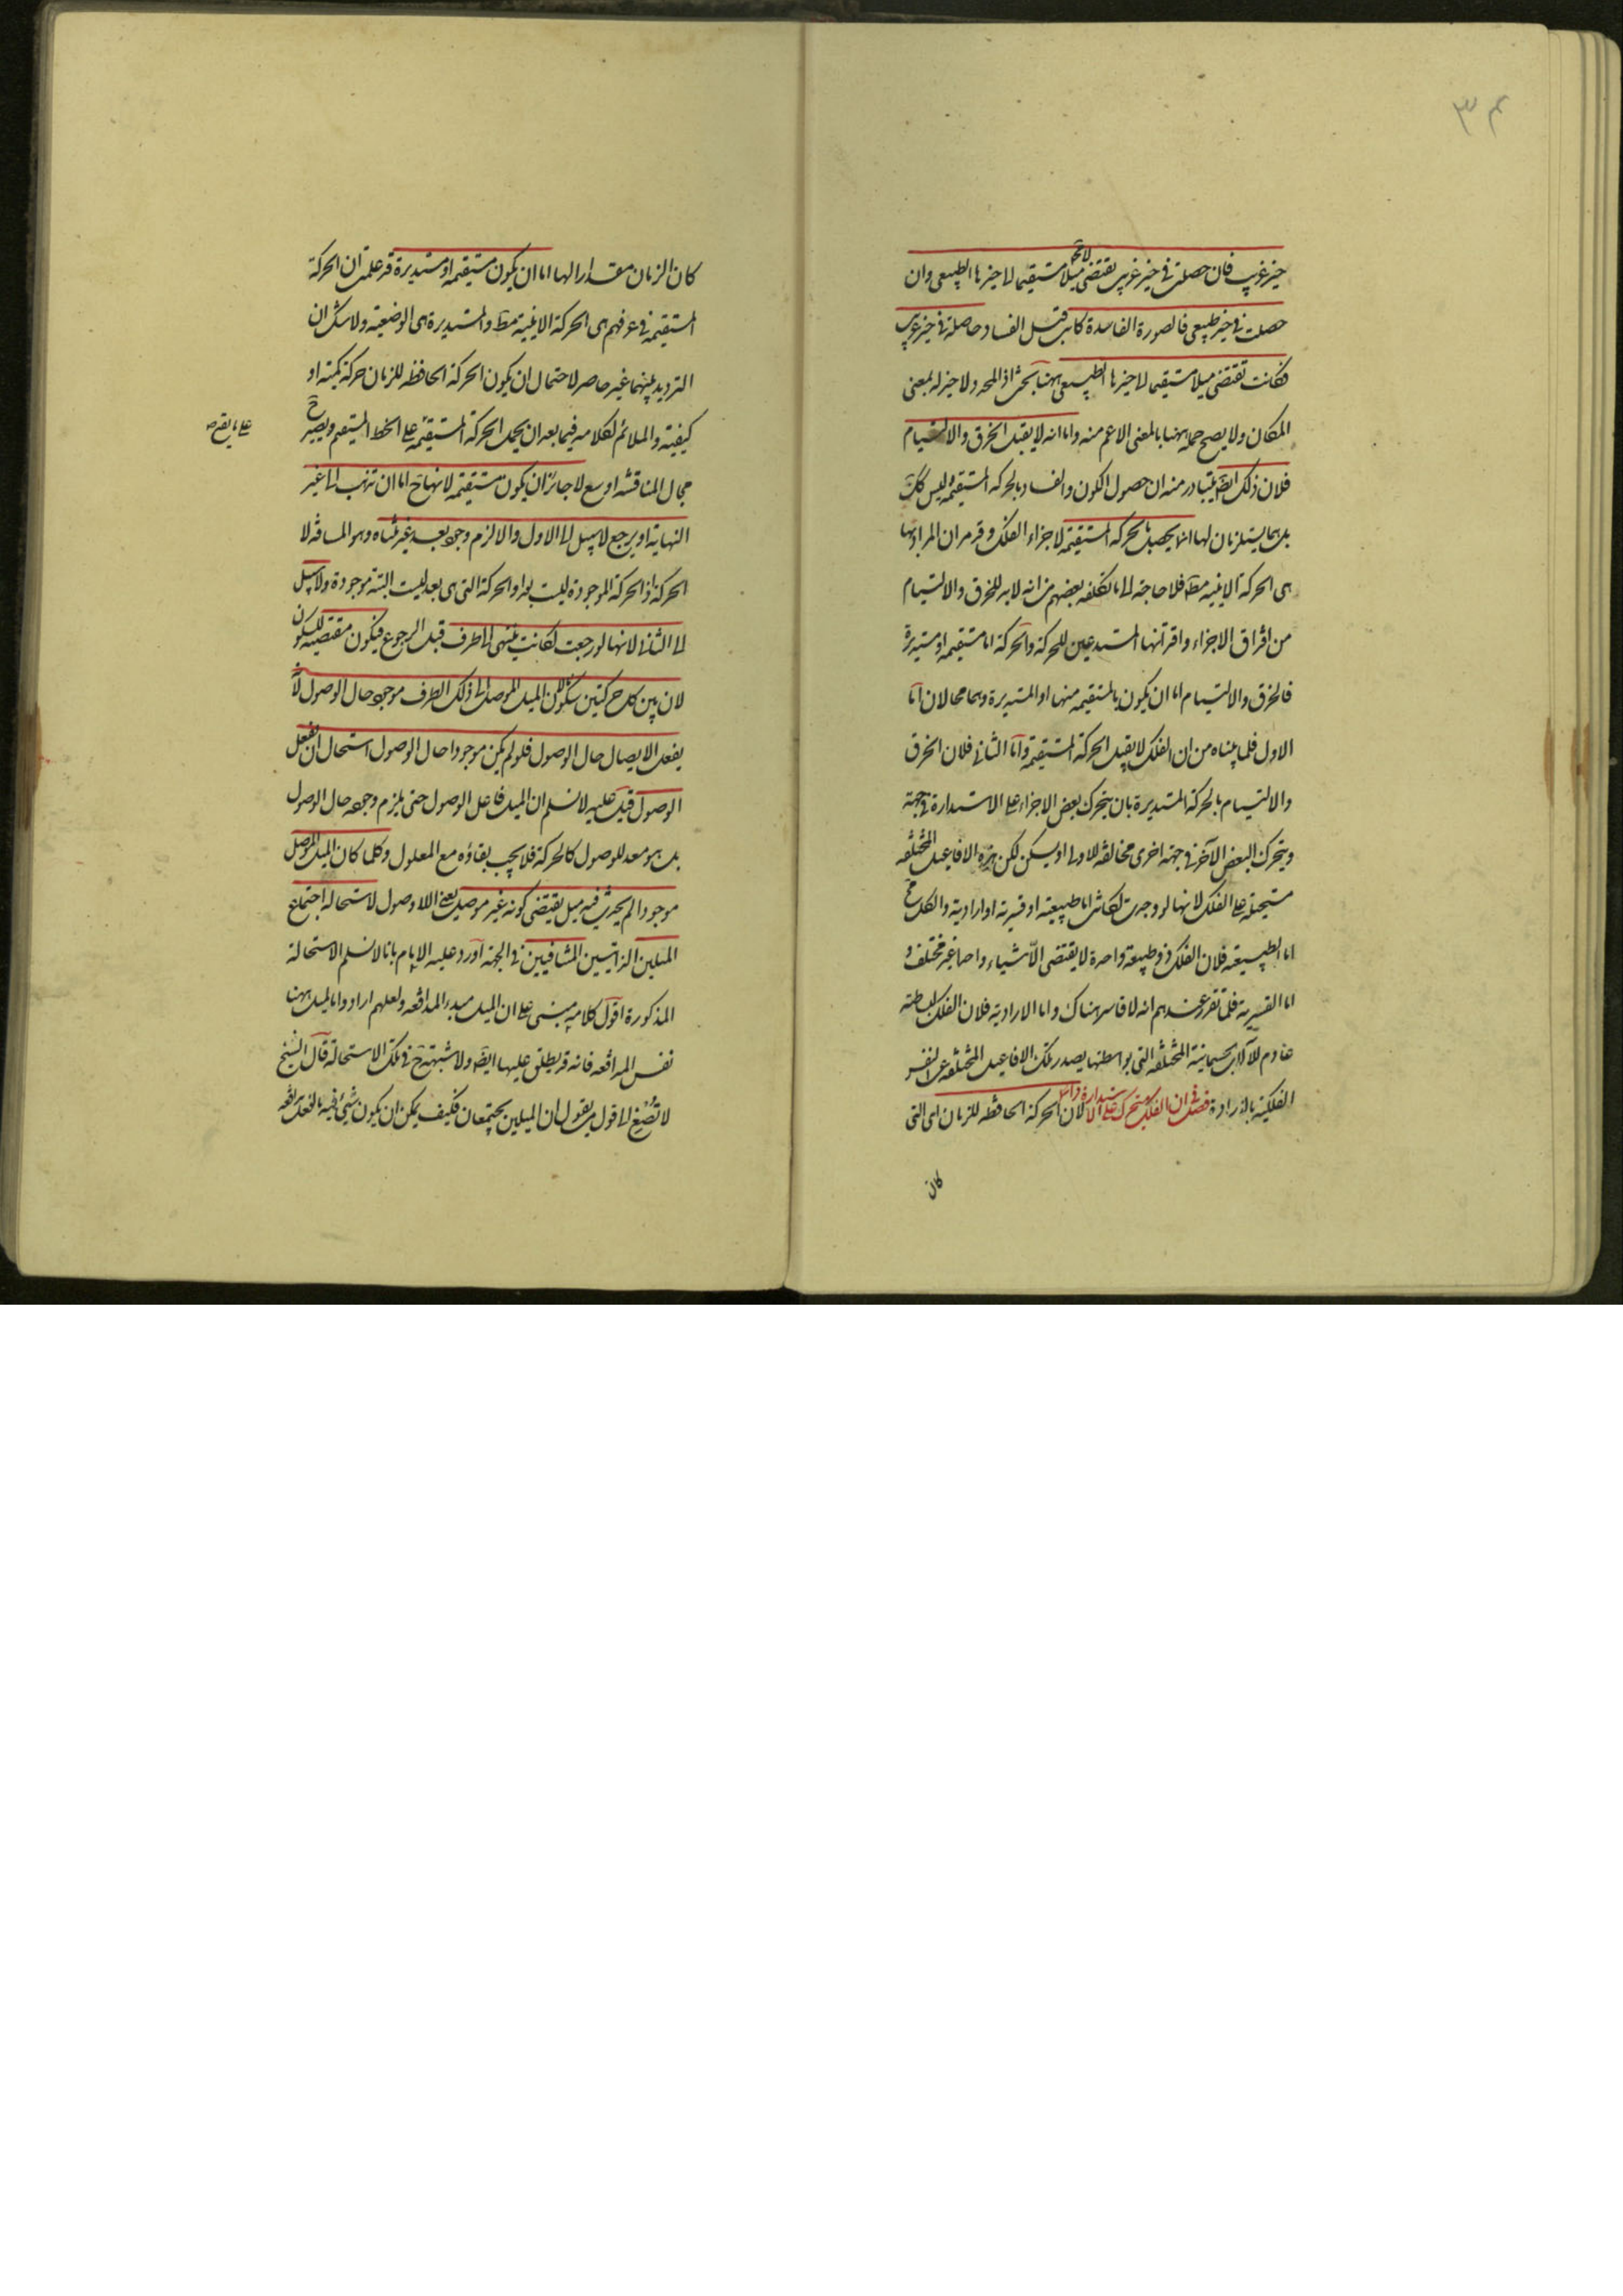 ٣٤
حيز غريب فان حصلت في حيز غريب يقتضي ميلا مستقيما الى حيزها الطبيعي وان
حصلت في حيز طبيعي فالصورة الفاسدة كانت قبل الفساد حاصلة في حيز غريب
فكانت تقتضي ميلا مستقيما الى حيزها الطبيعي ههنا بحث اذ المحدد لا حيز له بمعنى
المكان ولا يصح حمله ههنا بالمعنى الاعم منه واما انه لا يقبل الخرق والالتيام
فلان ذلك ايضا يتبادر منه ان حصول الكون والفساد بالحركة المستقيمة وليس كك
بل هما يستلزمان لها انما يحصل بالحركة المستقيمة لاجزاء الفلك وقد مر ان المراد بها
هى الحركة الاينية مط فلا حاجة الى ما تكلفه بعضهم من انه لا بد للخرق والالتيام
من افتراق الاجزاء واقترانها المستدعيين للحركة والحركة اما مستقيمة او مستديرة
فالخرق والالتيام اما ان يكون بالمستقيمة منها او المستديرة وهما محالان اما
الاول فلما بيناه من ان الفلك لا يقبل الحركة المستقيمة واما الثاني فلان الخرق
والالتيام بالحركة المستديرة بان يتحرك بعض الاجزاء على الاستدارة في جهة
ويتحرك البعض الآخر في جهة اخرى مخالفة للاولى او يسكن لكن هذه الافاعيل المختلفة
مستحيلة على الفلك لانها لو وجدت لكانت اما طبيعية او قسرية او ارادية والكل مح
اما الطبيعية فلان الفلك ذو طبيعة واحدة لا يقتضى الا شياء واحدا غير مختلف و
اما القسرية فلما تقرر عندهم انه لا قاسر هناك واما الارادية فلان الفلك لبساطته
عادم للآلات الجسمانية المختلفة التى بواسطتها يصدر تلك الافاعيل المختلفة عن النفس
الفلكية بالارادة فصل في ان الفلك يتحرك على الاستدارة دائما لان الحركة الحافظة للزمان اى التى
كان
كان الزمان مقدارا لها اما ان يكون مستقيمة او مستديرة قد علمت ان الحركة
المستقيمة في عرفهم هى الحركة الاينية مط والمستديرة هى الوضعية ولا شك ان
الترديد بينهما غير حاصر لاحتمال ان يكون الحركة الحافظة للزمان حركة كمية او
كيفية والملائم لكلامه فيما بعد ان يحمل الحركة المستقيمة على الخط المستقيم ويصير ح
مجال المناقشة اوسع لا جائز ان يكون مستقيمة لانها ح اما ان تذهب الى غير
النهاية او يرجع لا سبيل الى الاول والا لزم وجود بعد غير متناه وهو المسافة لا
الحركة اذ الحركة الموجودة ليست بعدا والحركة التى هى بعد ليست البتة موجودة ولا سبيل
الى الثاني لانها لو رجعت لكانت تنتهى الى طرف قبل الرجوع فيكون مقتضية للسكون
لان بين كل حركتين سكونا لان الميل الموصل الى ذلك الطرف موجود حال الوصول لانه
يفعل الايصال حال الوصول فلو لم يكن موجودا حال الوصول استحال ان يفعل
الوصول قيل عليه لا نسلم ان الميل فاعل الوصول حتى يلزم وجوده حال الوصول
بل هو معد للوصول كالحركة فلا يجب بقاؤه مع المعلول وكلما كان الميل الموصل
موجودا لم يحدث فيه ميل يقتضى كونه غير موصل يعنى اللاوصول لاستحالة اجتماع
الميلين الذاتيين المتنافيين في الجهة اورد عليه الامام بانا لا نسلم الاستحالة
المذكورة اقول كلامه مبنى على ان الميل مبدء المدافعة ولعلهم ارادوا بالميل ههنا
نفس المدافعة فانه قد يطلق عليها ايضا ولا شبهة ح في تلك الاستحالة قال الشيخ
لا تصغ الى قول من يقول ان الميلين يجتمعان فكيف يمكن ان يكون شئ فيه بالفعل مدافعة